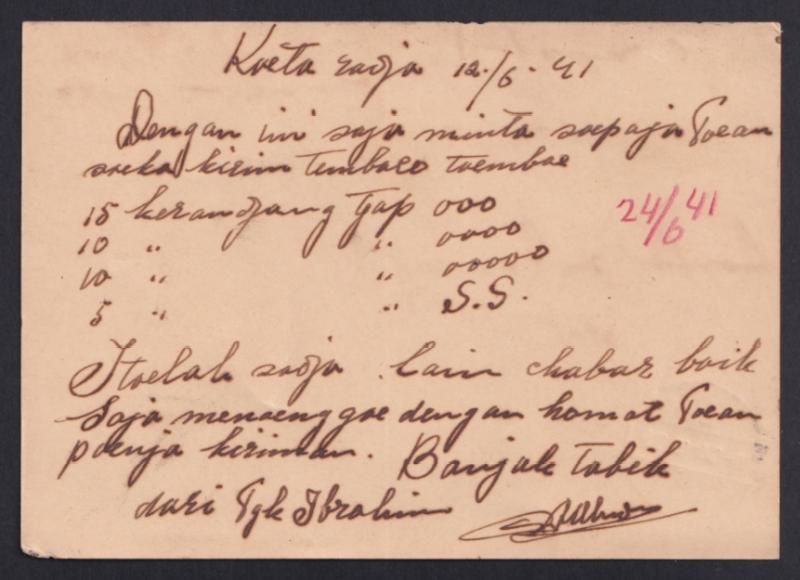 Koeta radja 12/6-41
Dengan ini saja minta soepaja Toean
soeka kirim tembaco toemboe
15 kerandjang tjap 000
10 " " 0000
10 " " 00000
5 " " S.S.
24/6 41
Itoelah sadja. lain chabar baik
Saja menoenggoe dengan hormat Toean
poenja kiriman. Banjak tabik
dari Tgk Ibrahim